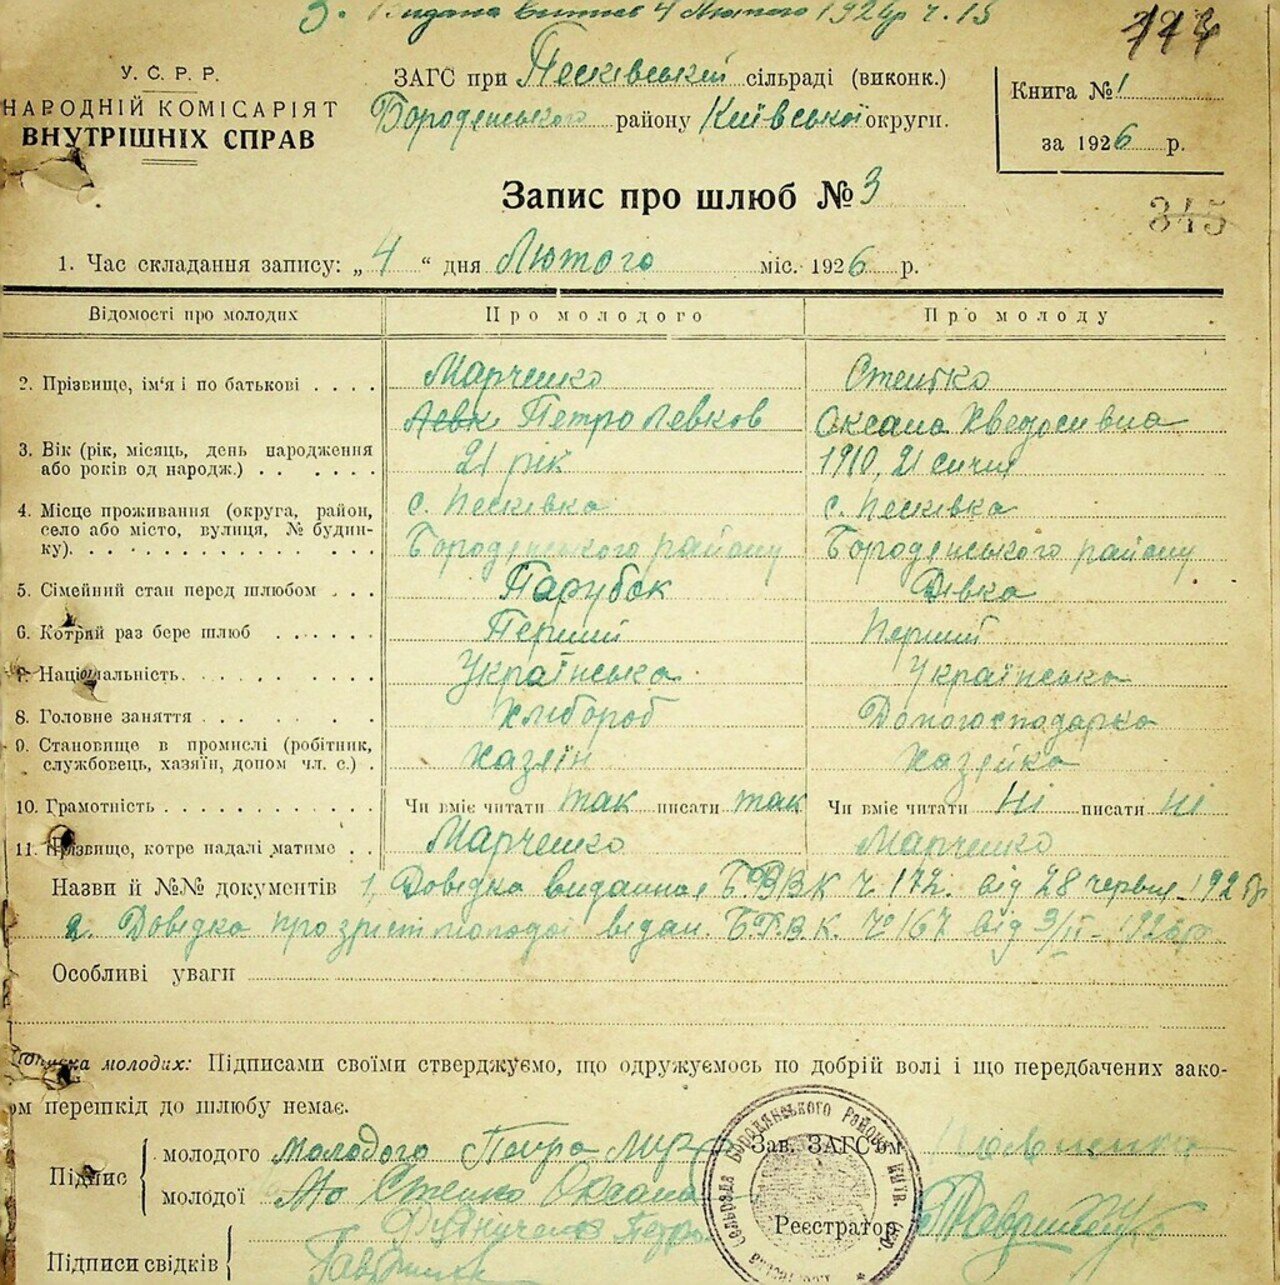 3. Видана витяг 4 Лютого 1926р ч. 15
У. С. Р. Р.
НАРОДНІЙ КОМІСАРІЯТ
ВНУТРІШНІХ СПРАВ
ЗАГС при Песківський сільраді (виконк.)
Бородянського району Київської округи.
Книга № 1
за 1926 р.
Запис про шлюб № 3
345
1. Час складання запису: „4“ дня Лютого міс. 1926 р.
Відомості про молодих Про молодого Про молоду
2. Прізвище, ім'я і по батькові . . . . Марченко Стенько
Петро Левков Оксана Хведосивна
3. Вік (рік, місяць, день народження або років од народж.) . . . . . . 21 рік 1910, 21 сичня
4. Місце проживання (округа, район, село або місто, вулиця, № будинку). с. Песківка с. Песківка
Бородянського району Бородянського району
5. Сімейний стан перед шлюбом . . . Парубок Дівка
6. Котрий раз бере шлюб . . . . . . Перший Перший
7. Національність. Українська Українська
8. Головне заняття . . . . . . Хлибороб Домогосподарка
9. Становище в промислі (робітник, службовець, хазяїн, допом чл. с.) . Хазяїн Хазяйка
10. Грамотність Чи вміє читати так писати так Чи вміє читати Ні писати Ні
11. Прізвище, котре надалі матиме . . Марченко Марченко
Назви й №№ документів 1, Довідка виданная БРВК ч. 172. від 28 червня 192
2. Довідка про зріст молодої видан. Б.Р.В.К. Ч° 167 від 3/II- 1926р
Особливі уваги
Підписка молодих: Підписами своїми стверджуємо, що одружуємось по добрій волі і що передбачених зако-
ом перешкід до шлюбу немає.
Підпис
молодого молодого Петро
молодої Стенько Оксана
Зав. ЗАГС'ом
Реєстратор
Підписи свідків
Петро
Сільрада Бородянського району Київ. окр.